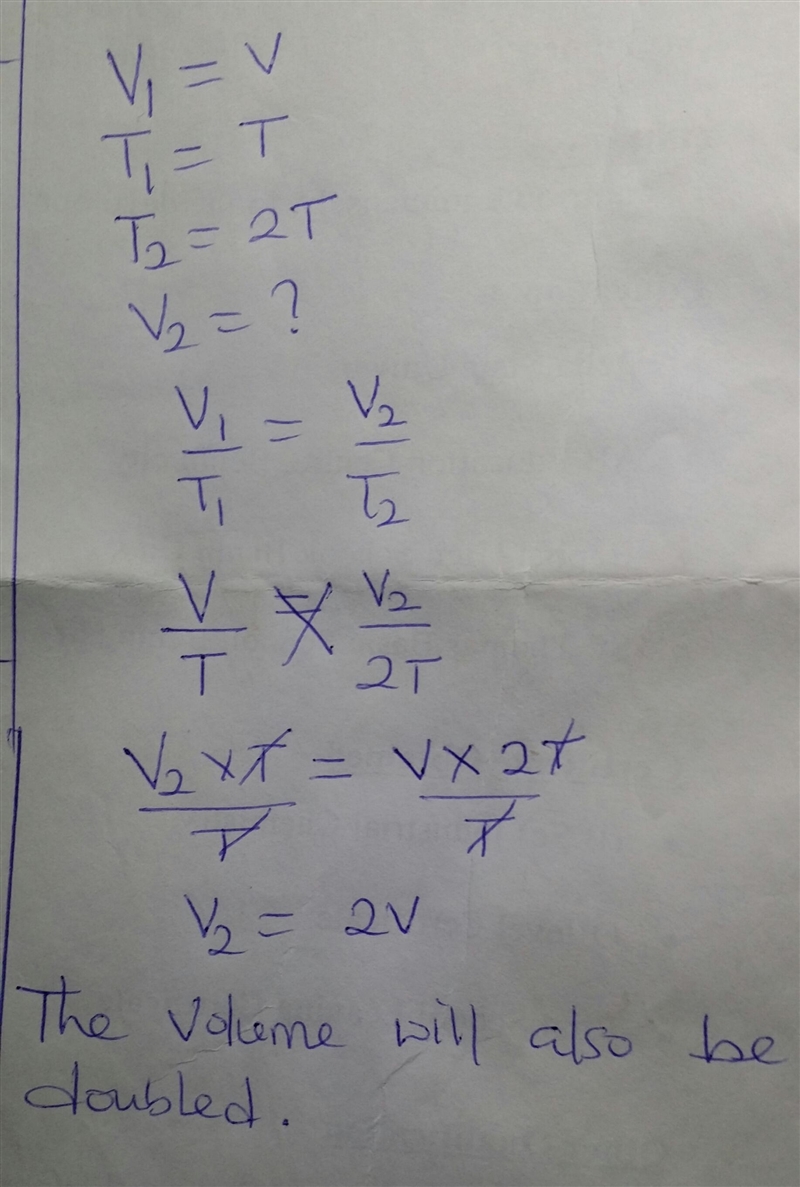 V₁ = V
T₁ = T
T₂ = 2T
V₂ = ?
V₁/T₁ = V₂/T₂
V/T = V₂/2T
V₂ × T/T = V × 2T/T
V₂ = 2V
The Volume will also be
doubled.